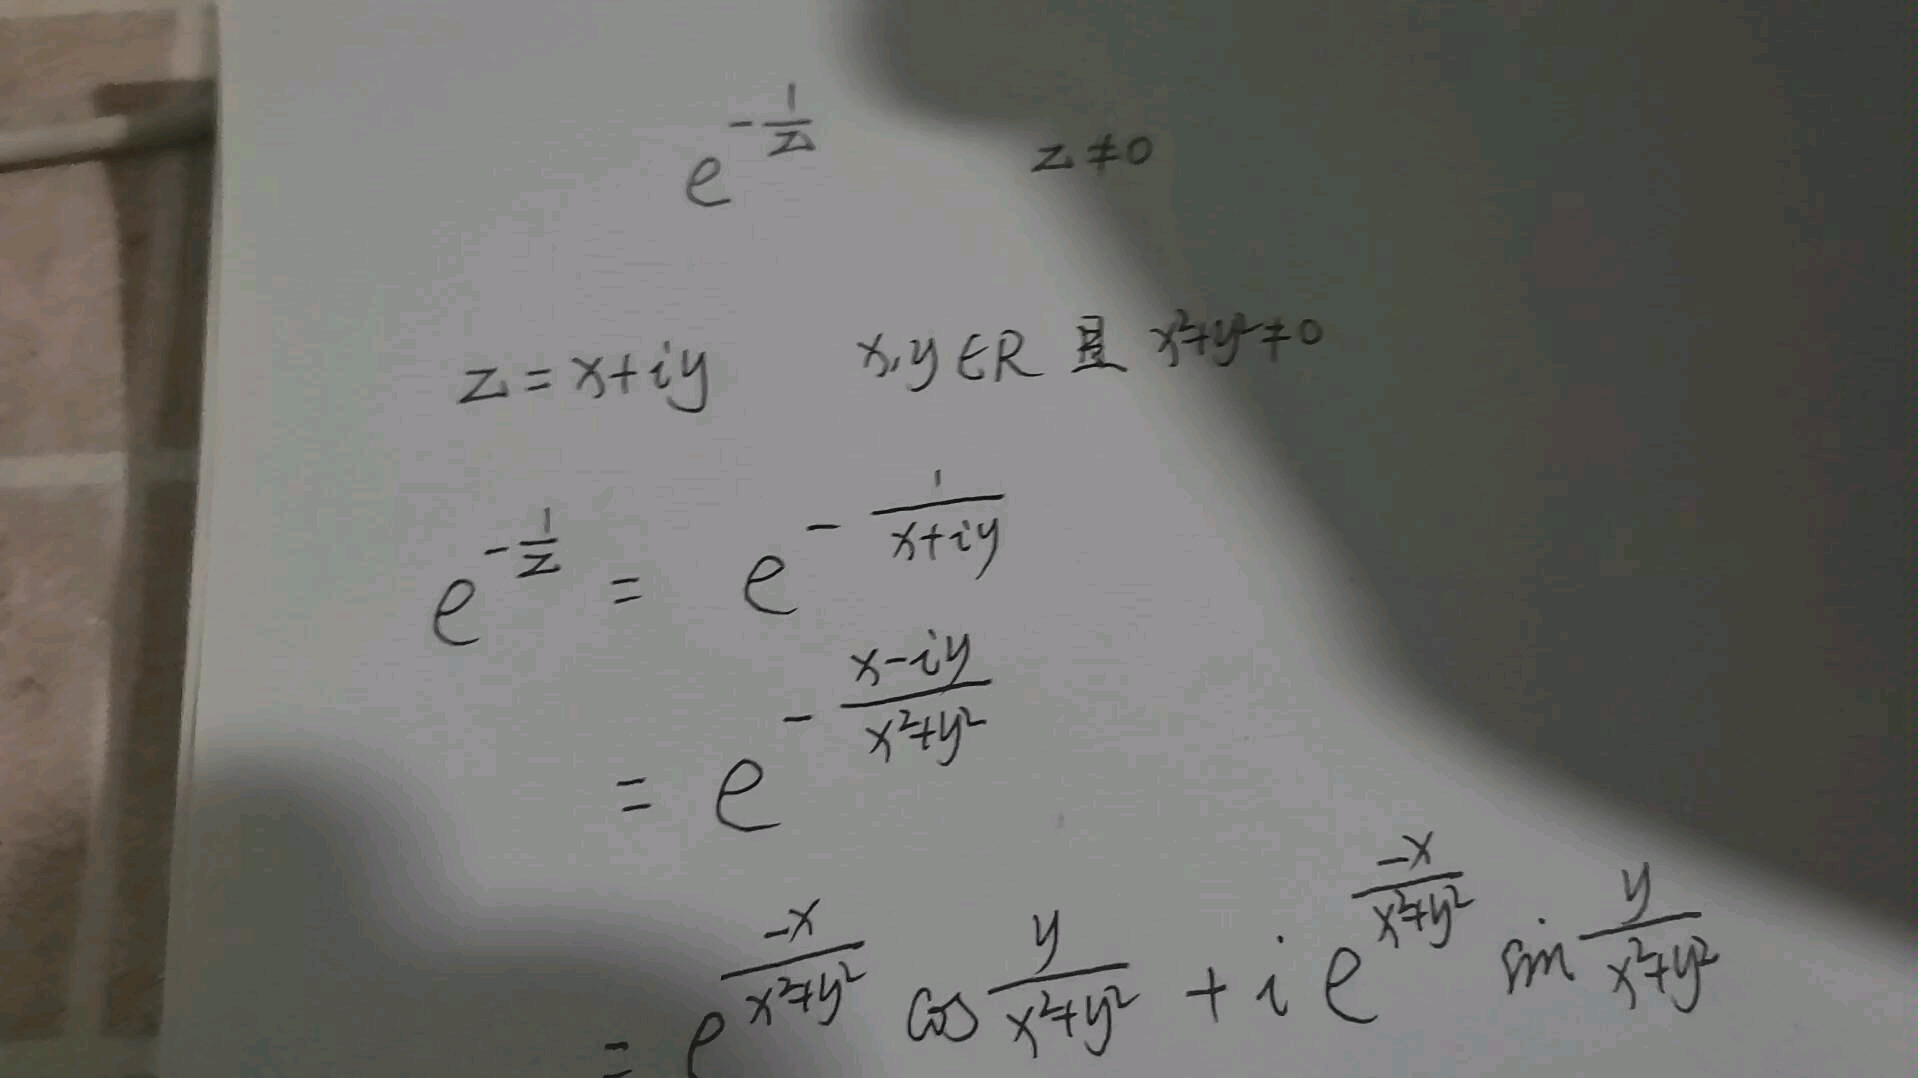 e^{-\frac{1}{z}} z≠0
z=x+iy x,y∈R 且 x²+y²≠0
e^{-\frac{1}{z}} = e^{-\frac{1}{x+iy}}
= e^{-\frac{x-iy}{x²+y²}}
= e^{\frac{-x}{x²+y²}} cos\frac{y}{x²+y²} + i e^{\frac{-x}{x²+y²}} sin\frac{y}{x²+y²}